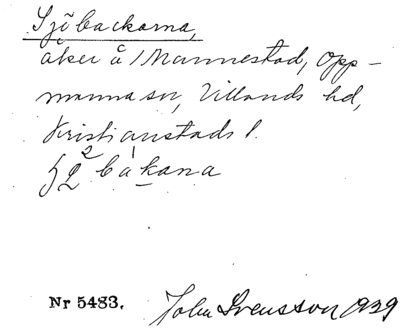 Sjöbackarna,
åker å Mannestad, Opp-
manna sn, Villands hd,
Kristianstads l.
båkana
Nr 5483. John Svensson 1939